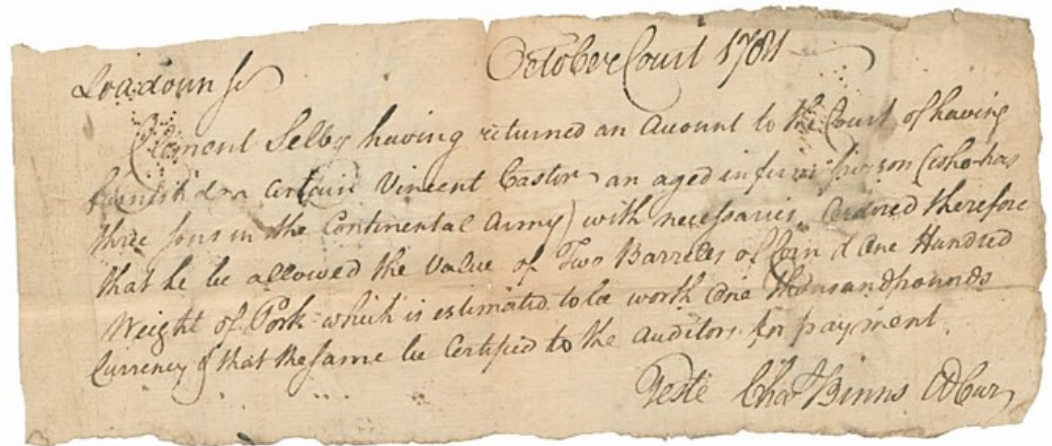 Loudoun Sc
October Court 1781
Clement Selby having returned an Account to the Court of having
furnish'd a Certain Vincent Caster an aged infirm person (who has
three sons in the Continental Army) with necessaries, Ordered therefore
that he be allowed the Value of Two Barreles of Corn & One Hundred
Weight of Pork which is estimated to be worth One thousand pounds
Currency & that the same be Certified to the Auditors for payment.
Teste Chas Binns Cl Cur